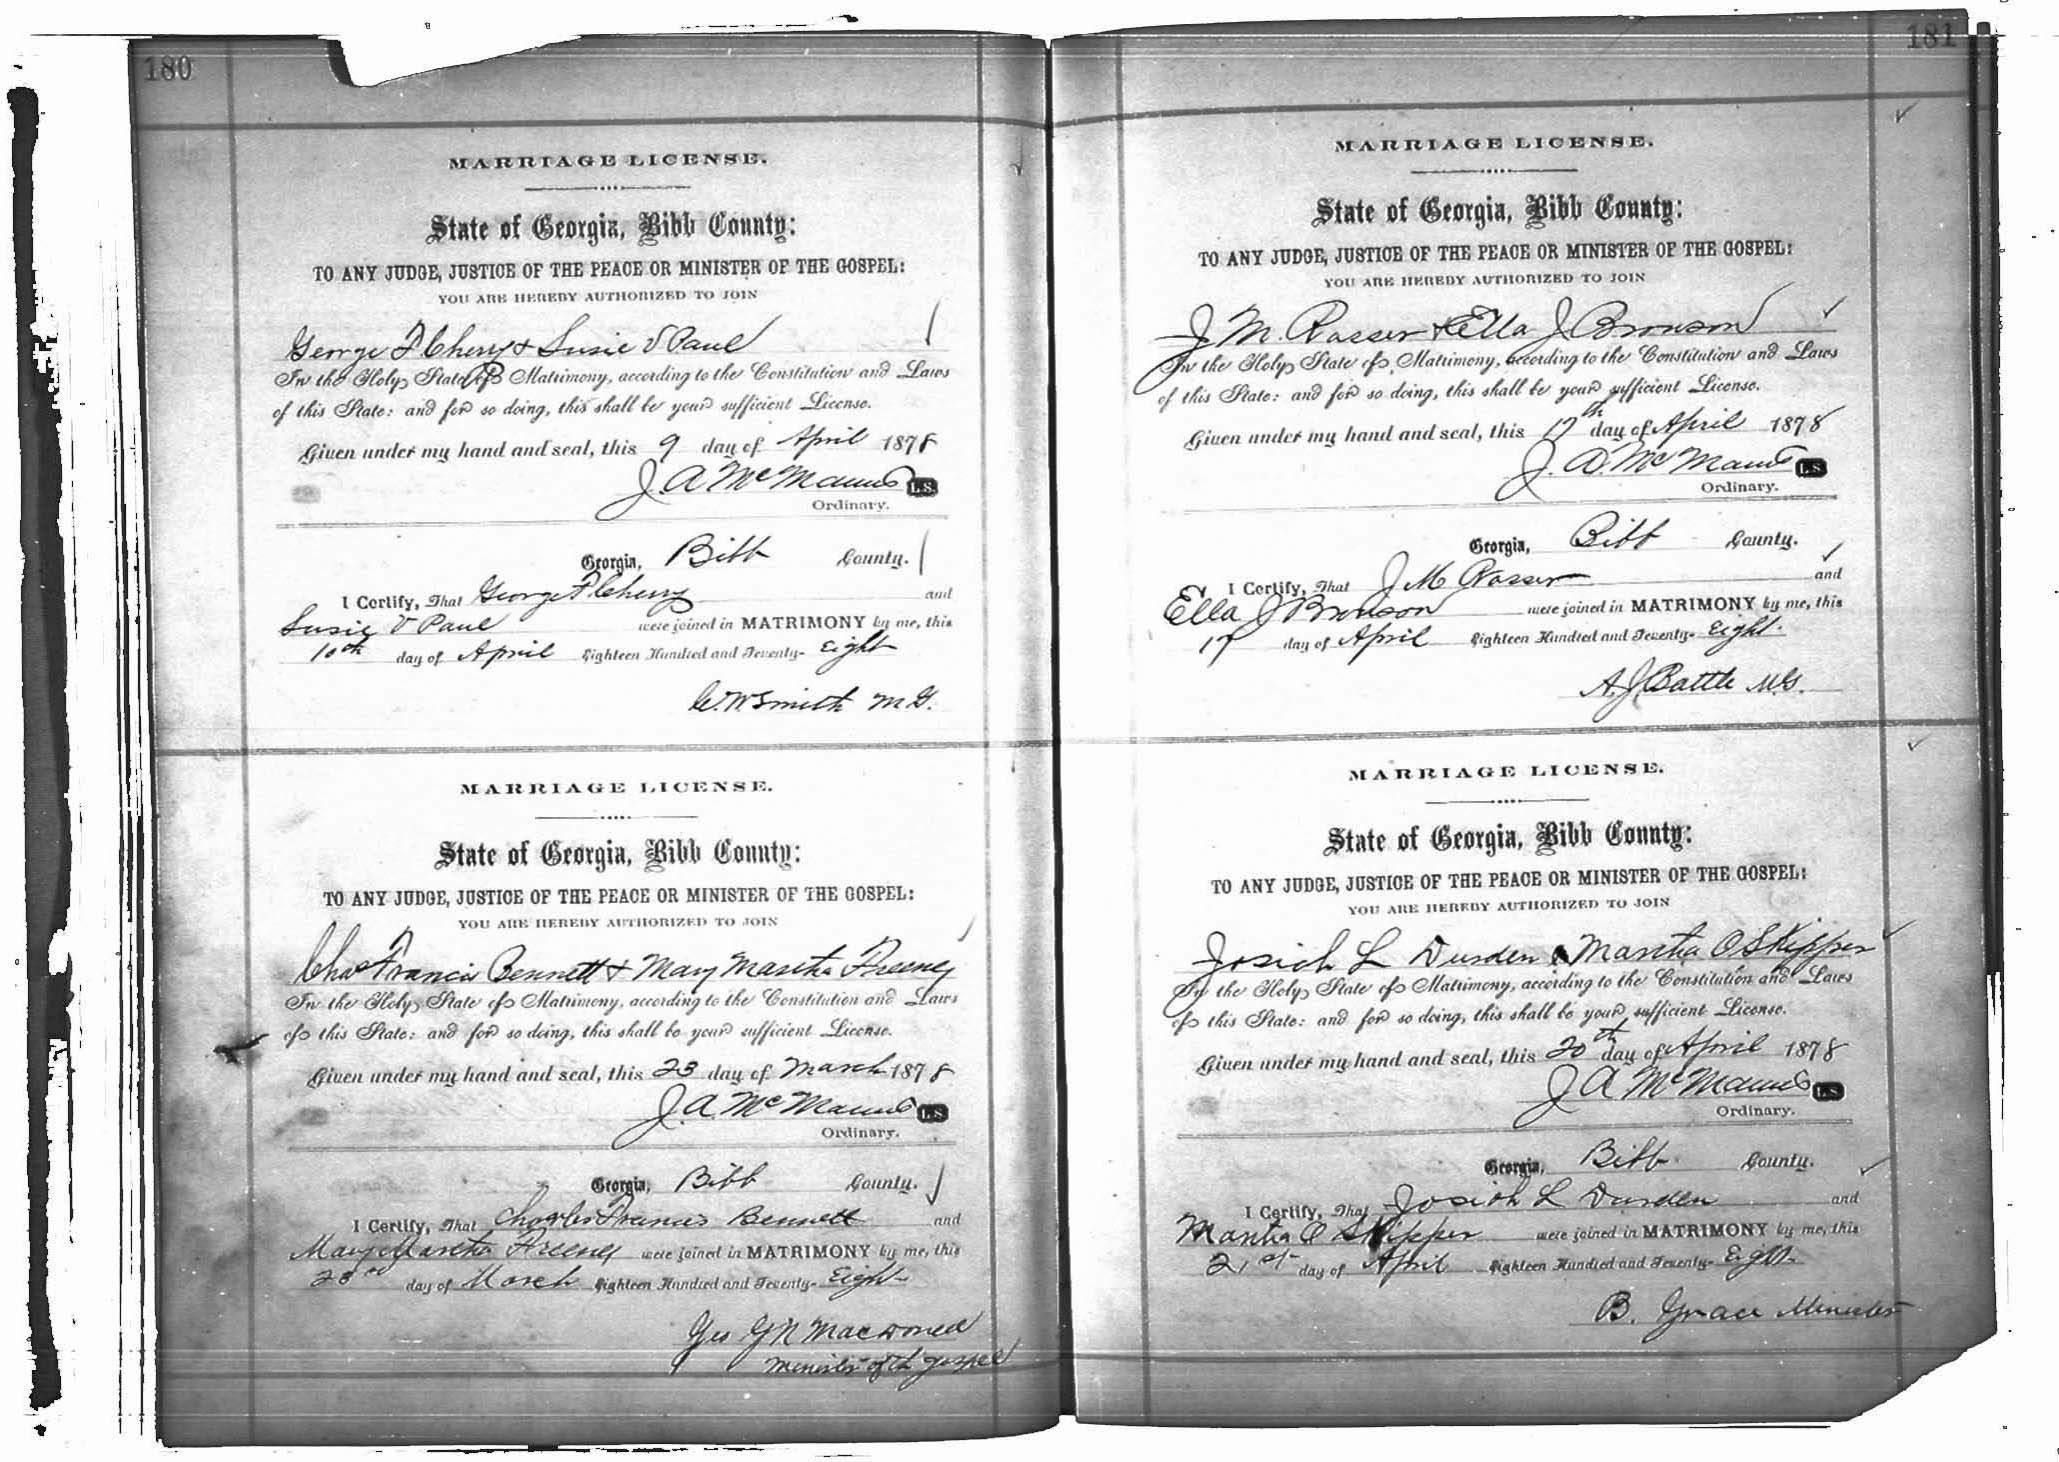 180
MARRIAGE LICENSE.
State of Georgia, Bibb County:
TO ANY JUDGE, JUSTICE OF THE PEACE OR MINISTER OF THE GOSPEL:
YOU ARE HEREBY AUTHORIZED TO JOIN
George F Cherry & Susie V Paul
In the Holy State of Matrimony, according to the Constitution and Laws
of this State: and for so doing, this shall be your sufficient License.
Given under my hand and seal, this 9 day of April 1878
J. A McManus L.S.
Ordinary.
Georgia, Bibb County.
I Certify, That George F Cherry and
Susie V Paul were joined in MATRIMONY by me, this
10th day of April Eighteen Hundred and Seventy- Eight
C. W. Smith M G.
MARRIAGE LICENSE.
State of Georgia, Bibb County:
TO ANY JUDGE, JUSTICE OF THE PEACE OR MINISTER OF THE GOSPEL:
YOU ARE HEREBY AUTHORIZED TO JOIN
Chas Francis Bennett & Mary Martha Freeney
In the Holy State of Matrimony, according to the Constitution and Laws
of this State: and for so doing, this shall be your sufficient License.
Given under my hand and seal, this 23 day of March 1878
J. A. McManus L.S.
Ordinary.
Georgia, Bibb County.
I Certify, That Charles Francis Bennett and
Mary Martha Freeney were joined in MATRIMONY by me, this
23rd day of March Eighteen Hundred and Seventy- Eight
Geo G N MacDonell
Minister of the gospel
181
MARRIAGE LICENSE.
State of Georgia, Bibb County:
TO ANY JUDGE, JUSTICE OF THE PEACE OR MINISTER OF THE GOSPEL:
YOU ARE HEREBY AUTHORIZED TO JOIN
J. M. Rosser & Ella J Bronson
In the Holy State of Matrimony, according to the Constitution and Laws
of this State: and for so doing, this shall be your sufficient License.
Given under my hand and seal, this 17th day of April 1878
J. A. McManus L.S.
Ordinary.
Georgia, Bibb County.
I Certify, That J M Rosser and
Ella J Bronson were joined in MATRIMONY by me, this
17 day of April Eighteen Hundred and Seventy- Eight.
A. J. Battle M.G.
MARRIAGE LICENSE.
State of Georgia, Bibb County:
TO ANY JUDGE, JUSTICE OF THE PEACE OR MINISTER OF THE GOSPEL:
YOU ARE HEREBY AUTHORIZED TO JOIN
Josiah L Durden & Martha O Skipper
In the Holy State of Matrimony, according to the Constitution and Laws
of this State: and for so doing, this shall be your sufficient License.
Given under my hand and seal, this 20th day of April 1878
J A McManus L.S.
Ordinary.
Georgia, Bibb County.
I Certify, That Josiah L Durden and
Martha O Skipper were joined in MATRIMONY by me, this
21st day of April Eighteen Hundred and Seventy- Eight.
B. Grace Minister